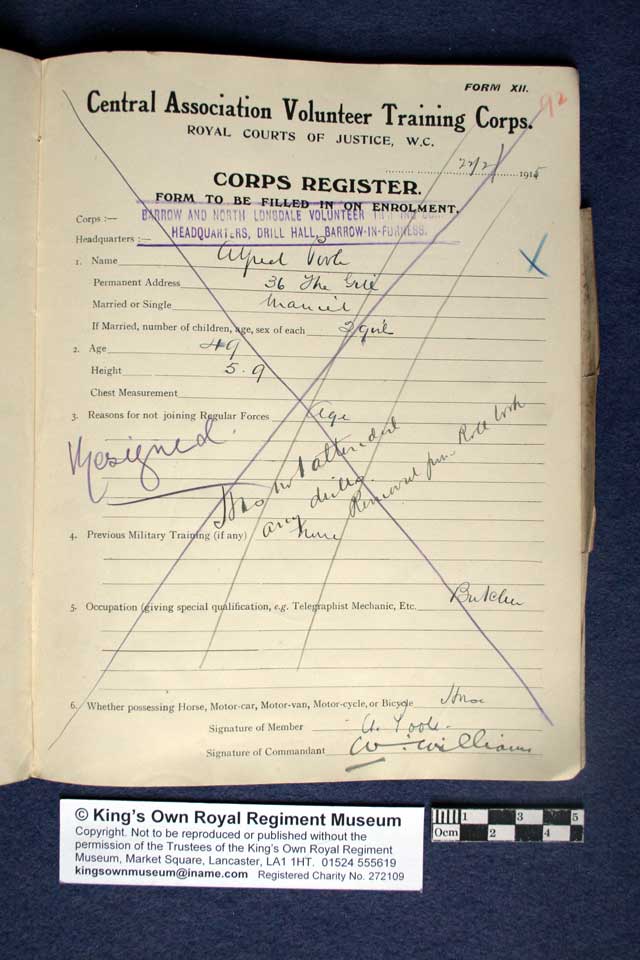 FORM XII.
92
Central Association Volunteer Training Corps.
ROYAL COURTS OF JUSTICE, W.C.
22/2/ 1915
CORPS REGISTER.
FORM TO BE FILLED IN ON ENROLMENT.
Corps :— BARROW AND NORTH LONSDALE VOLUNTEER
Headquarters :— HEADQUARTERS, DRILL HALL, BARROW-IN-FURNESS.
1. Name Alfred
Permanent Address 36 The
Married or Single Married
If Married, number of children, age, sex of each girl
2. Age 49
Height 5.9
Chest Measurement
3. Reasons for not joining Regular Forces Age
Resigned.
Has not attended
any drills.
Removed from Roll book
4. Previous Military Training (if any) None
5. Occupation (giving special qualification, e.g. Telegraphist Mechanic, Etc. Butcher
6. Whether possessing Horse, Motor-car, Motor-van, Motor-cycle, or Bicycle Horse
Signature of Member A.
Signature of Commandant W. Williams
© King's Own Royal Regiment Museum
Copyright. Not to be reproduced or published without the
permission of the Trustees of the King's Own Royal Regiment
Museum, Market Square, Lancaster, LA1 1HT. 01524 555619
kingsownmuseum@iname.com Registered Charity No. 272109
1 3 5
0cm 2 4